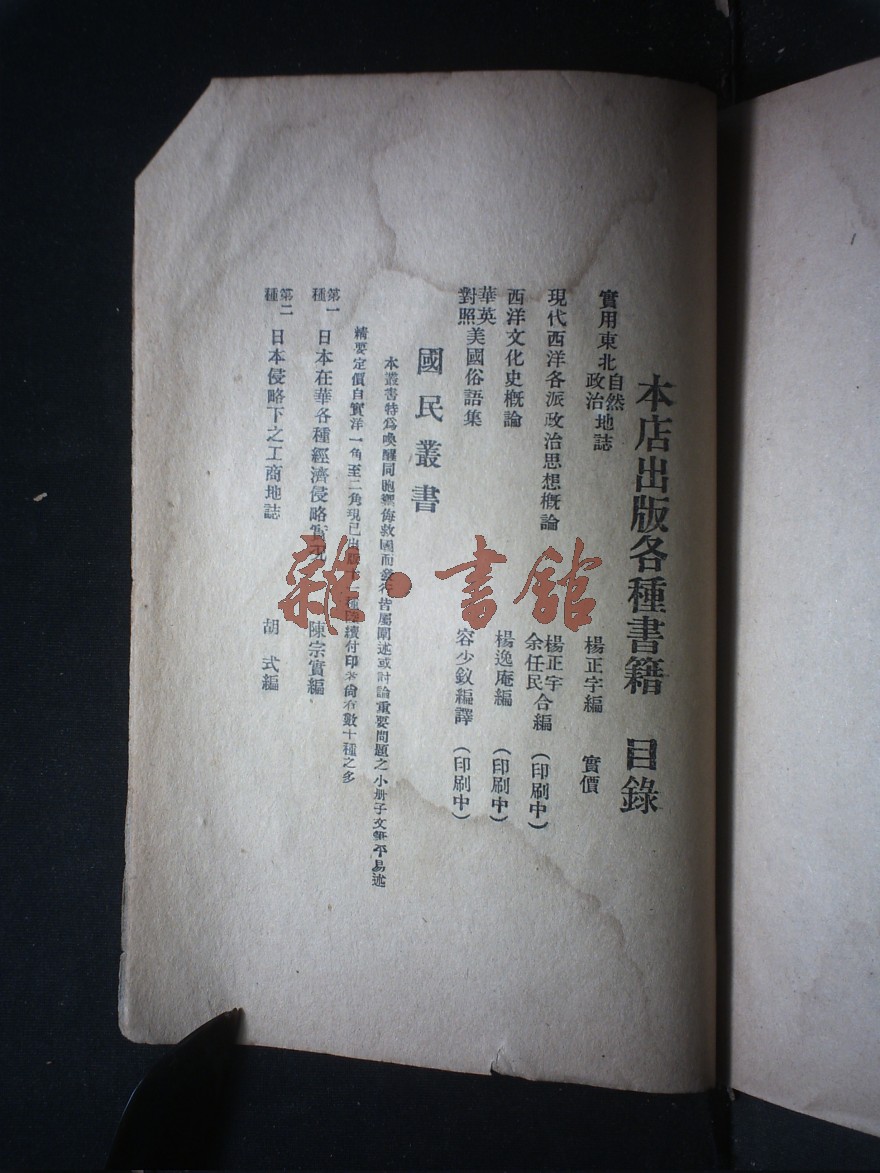 本店出版各種書籍 目錄
實用東北自然政治地誌 楊正宇編 實價
現代西洋各派政治思想概論 楊正宇余任民合編 (印刷中)
西洋文化史概論 楊逸庵編 (印刷中)
華英對照美國俗語集 容少釹編譯 (印刷中)
國民叢書
本叢書特爲喚醒同胞禦侮救國而發行皆屬闡述或討論重要問題之小册子文筆平易述
精要定價自實洋一角至二角現已出版十二種陸續付印者尙有數十種之多
第一種 日本在華各種經濟侵略實况 陳宗實編
第二種 日本侵略下之工商地誌 胡式編
雜·書館